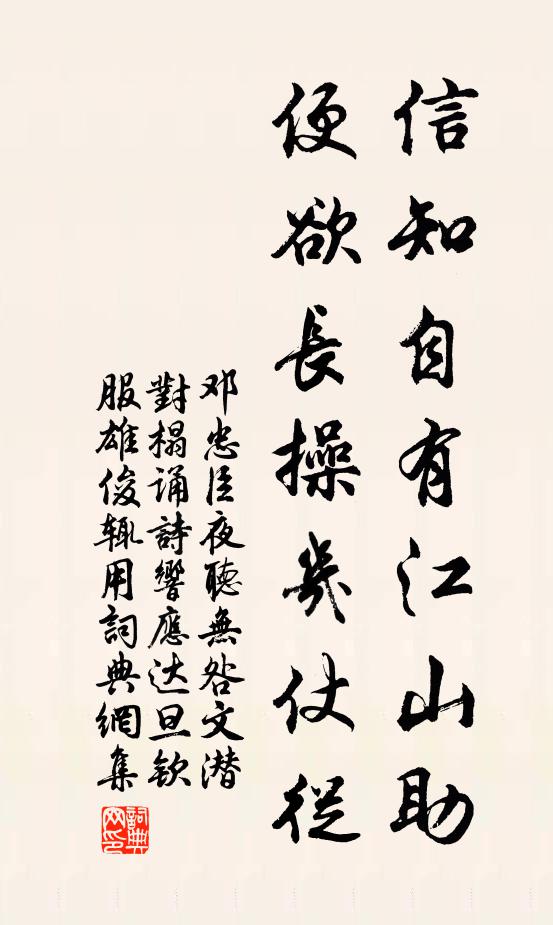 信知自有江山助
便欲長操几仗從
邓忠臣夜聽無咎文潜
對榻诵詩響應达旦欽
服雄俊辄用詞典網集
詞典網印